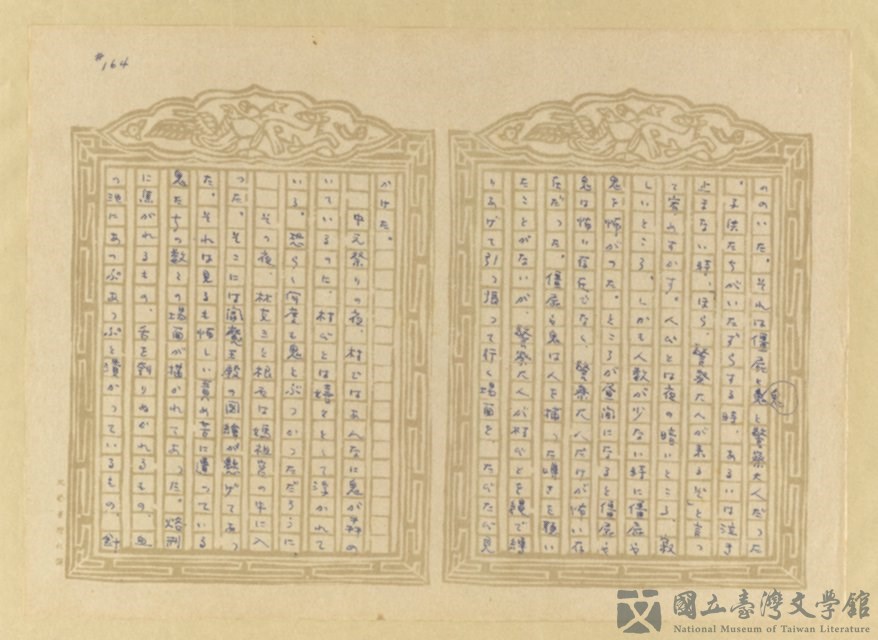 #164
ののいた。それは僵屍と鬼と警察大人だった
鬼
。子供たちがいたずらする時、あるいは泣き
止まない時、「ほら、警察大人が来るぞ」と言っ
て宥めすかす。人々は夜の暗いところ、寂
しいところ、しかも人数が少ない時に僵屍や
鬼を怖がった。ところが昼間になると僵屍や
鬼は怖い存在でなく、警察大人だけが怖い存
在だった。僵屍や鬼は人を捕った噂さを聴い
たことがないが、警察大人が村びとを縄で縛
りあげて引っ張って行く場面を、たびたび見
かけた。
中元祭りの夜、村ではあんなに鬼が
いているのに、村びとは嬉々として浮かれて
いる。恐らく何度も鬼とぶつかっただろうに
その夜、は媽祖宮の中に入
った。そこには閻魔王殿の図絵が懸げてあっ
た。それは見るも怖しい責め苦に遭っている
鬼たちの数々の場面が描かれてあった。
に焦がれるもの、舌を斬りぬかれるもの、血
の池にあっぷあっぷと漬かっているもの、針
國立臺灣文學館
National Museum of Taiwan Literature